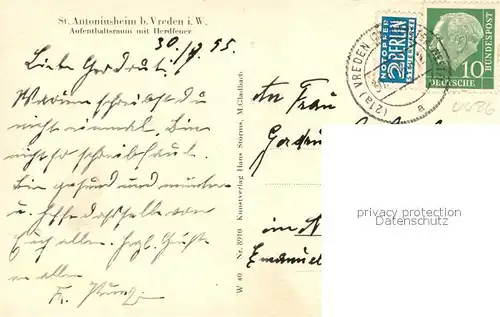 St. Antoniusheim b. Vreden i. W.
Aufenthaltsraum mit Herdfeuer
30./7. 55.
Liebe Gerdrut!
Warum schreibst du
nicht einmal. Bin
nicht so schreibfaul.
Bin gesund und munter
u. hoffe dasselbe von
Euch allen. Hrzl. Grüße
an alle
W 40 Nr. 8910 Kunstverlag Hans Storms, M.Gladbach
NOTOPFER
2 BERLIN
STEUERMARKE
DEUTSCHE
BUNDESPOST
10
(21a) VREDEN
a
An Frau
im
Emanuel
privacy protection
Datenschutz